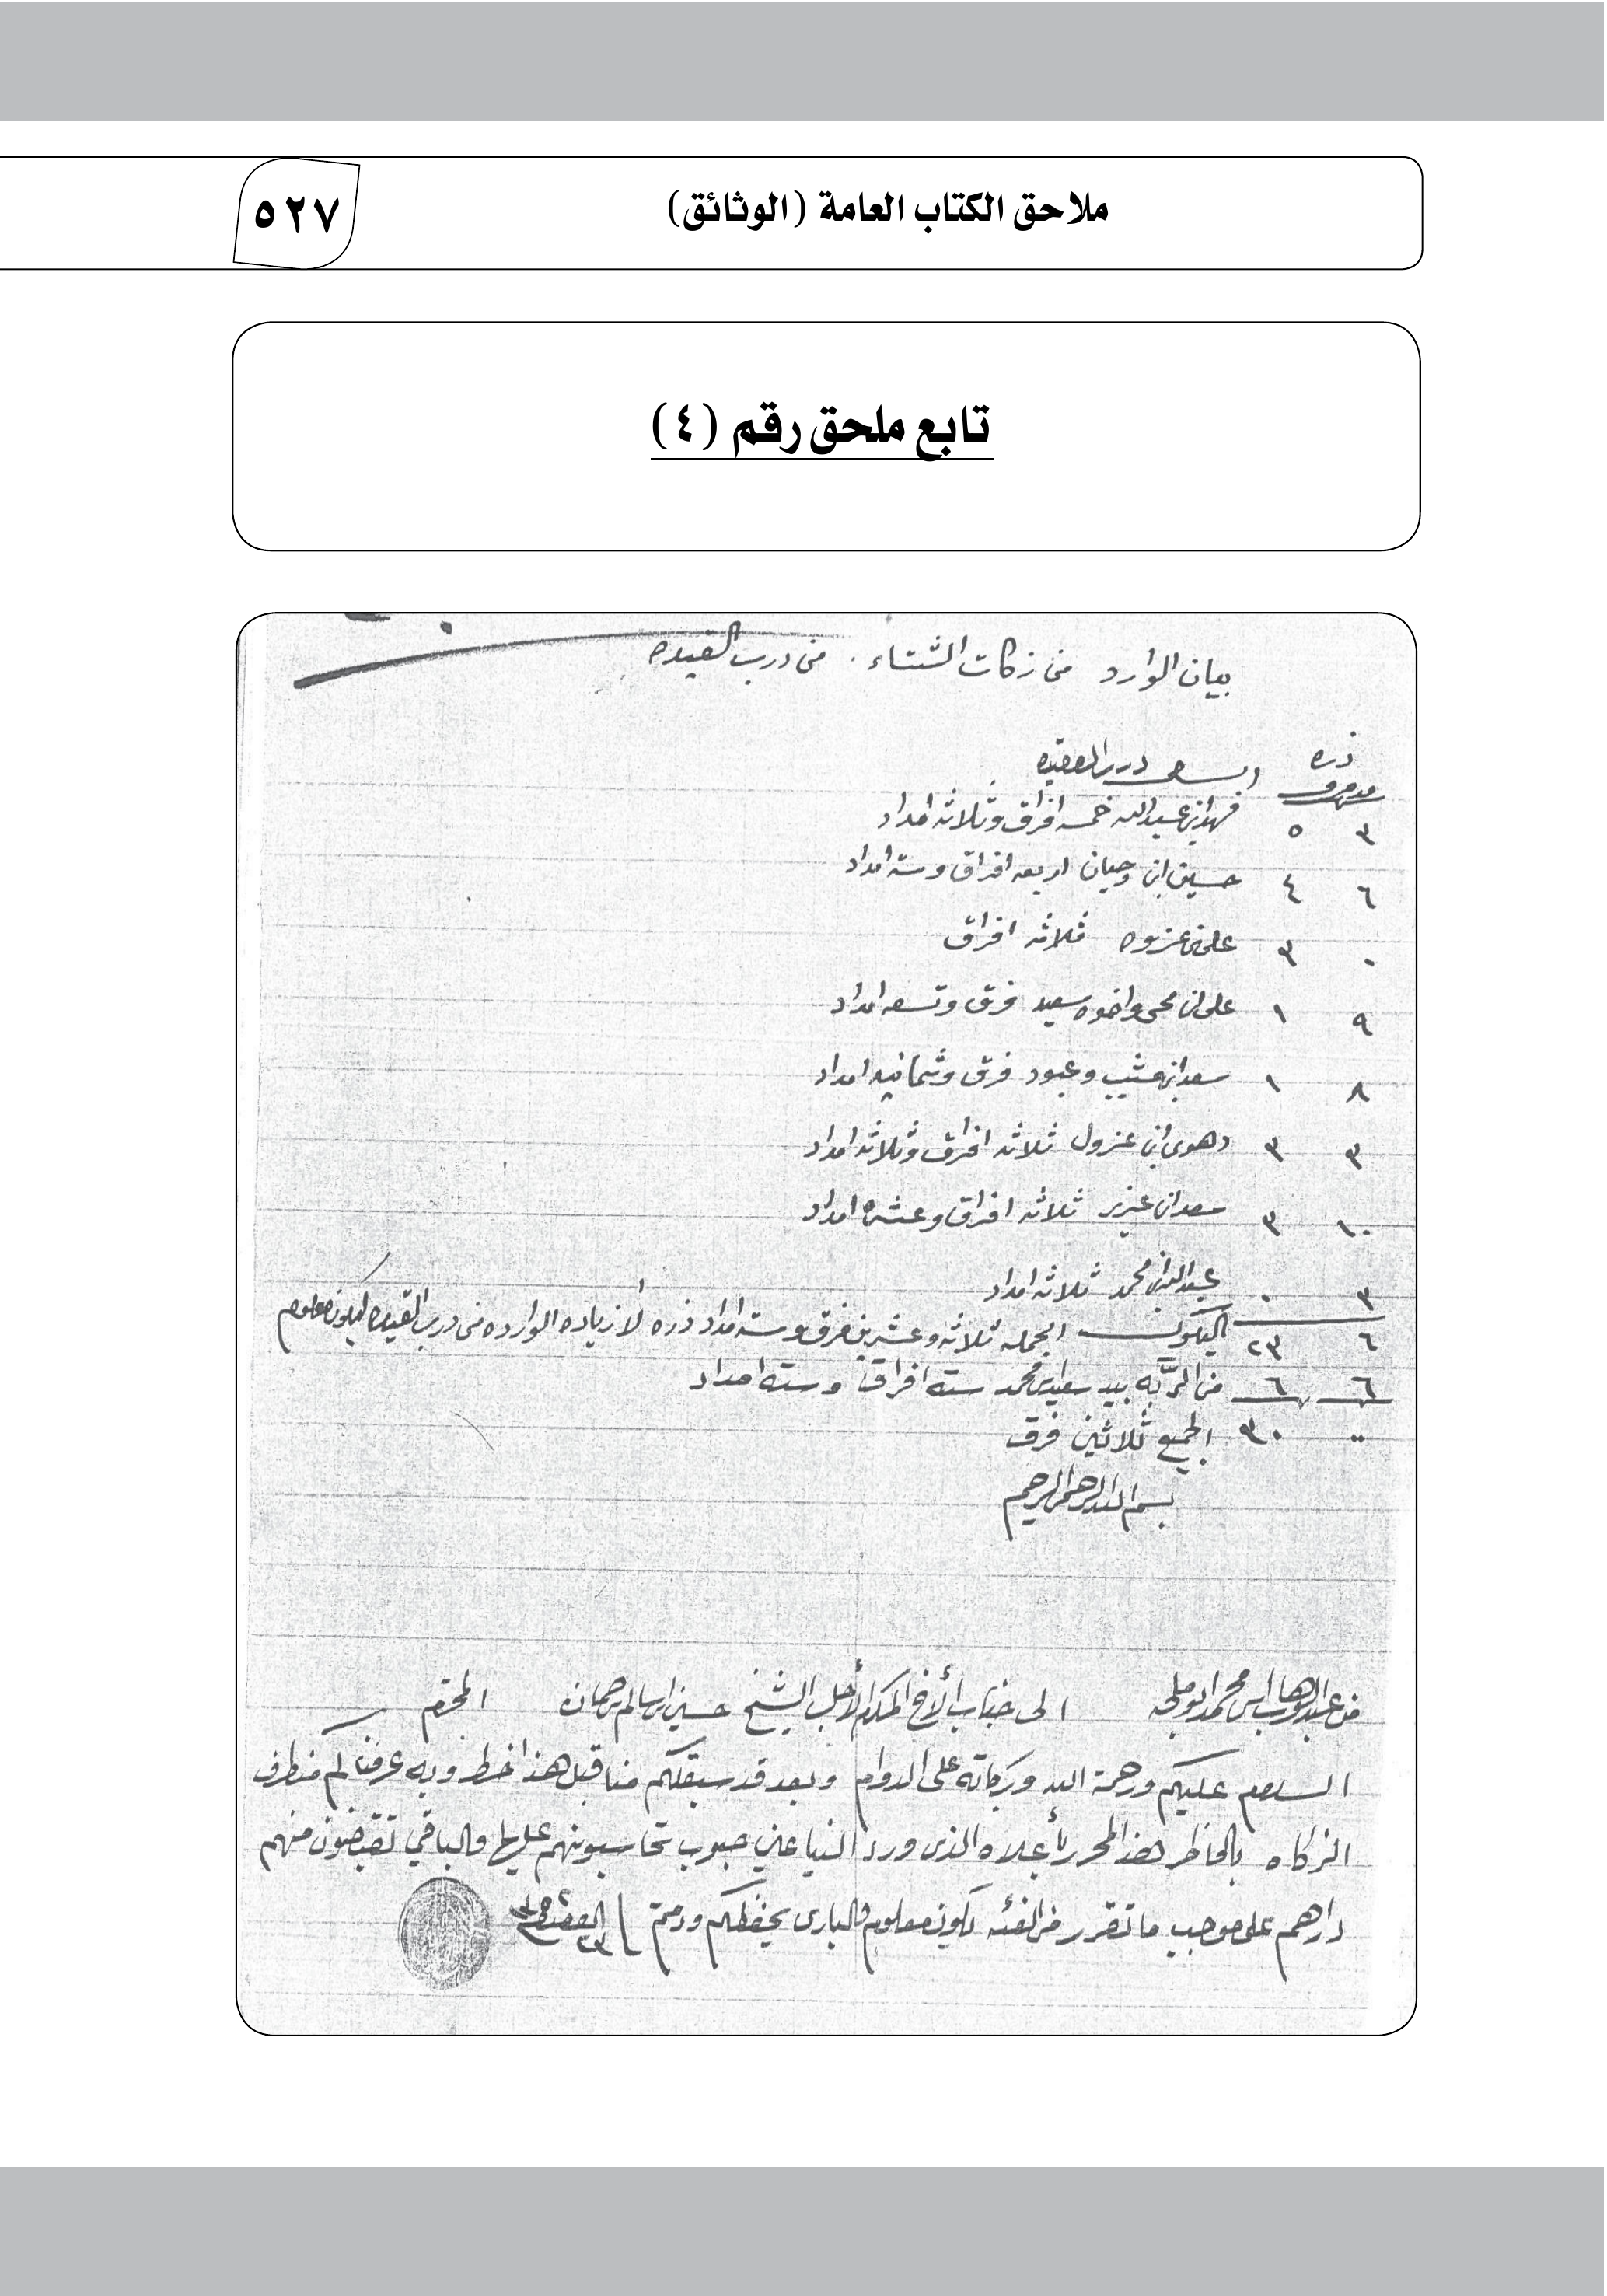 ملاحق الكتاب العامة (الوثائق)
٥٢٧
تابع ملحق رقم (٤)
بيان الوارد من زكات الشتاء . من درب العقيده
ذره
مد فرق
٣ ٥ فهد ابن عبدالله خمسه افراق وثلاثه امداد
٦ ٤ حسين ابن وحيان اربعه افراق وسته امداد
٠ ٣ علي بن عزوه ثلاثه افراق
٩ ١ علي ابن محي واخوه سعيد فرق وتسعه امداد
٨ ١ سعد ابن عشيب وعبود فرق وثمانيه امداد
٣ ٣ دهوي ابن عزول ثلاثه افراق وثلاثه امداد
١٠ ٣ سعد ابن عزيز ثلاثه افراق وعشره امداد
٣ ٠ عبدالله ابن محمد ثلاثه امداد
٦ ٢٣ اليكون الجمله ثلاثه وعشرين فرق وسته امداد ذره لا زياده الوارده من درب العقيده ليكون معلوم
٦ ٦ من الربه بيد سعيد بن محمد سته افراق وسته امداد
٠٠ ٣٠ الجميع ثلاثين فرق
بسم الله الرحمن الرحيم
من عبدالوهاب ابن محمد ابو ملحه الى جناب الأخ المكرم الأجل الشيخ حسين ابن سالم المحترم
السلام عليكم ورحمة الله وبركاته على الدوام وبعد قد سبق لكم منا قبل هذا خط وبه عرفناكم من طرف
الزكاه بالخاطر هذا المحرر بأعلاه الذي ورد الينا عن حبوب تحاسبونهم عليها والباقي تقبضون منهم
دراهم على موجب ما تقرر من الفئه يكون معلوم والباري يحفظكم ودمتم